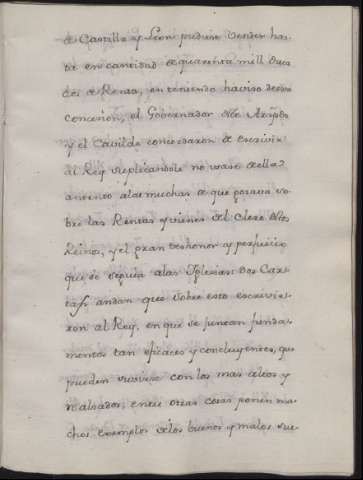 de Castilla y Leon pudiese vender has-
ta en cantidad de quarenta mill duca
dos de Renta, en teniendo haviso desta
concesion, el Governador deste Arzpdo
y el Cavildo concordaron de escrivir
al Rey suplicandole no usase de ella
atento a las muchas de que gozava so-
bre las Rentas y vienes del Clero destos
Reinos, y el gran deshonor y perjuicio
que se seguia a las Iglesias: dos Car-
tas andan que sobre esto escrivie-
ron al Rey, en que se juntan funda-
mentos tan eficaces y concluyentes, que
pueden vivirse con los mas altos y
realzados; entre otras cosas ponen mu-
chos exemplos de los buenos y malos suc-